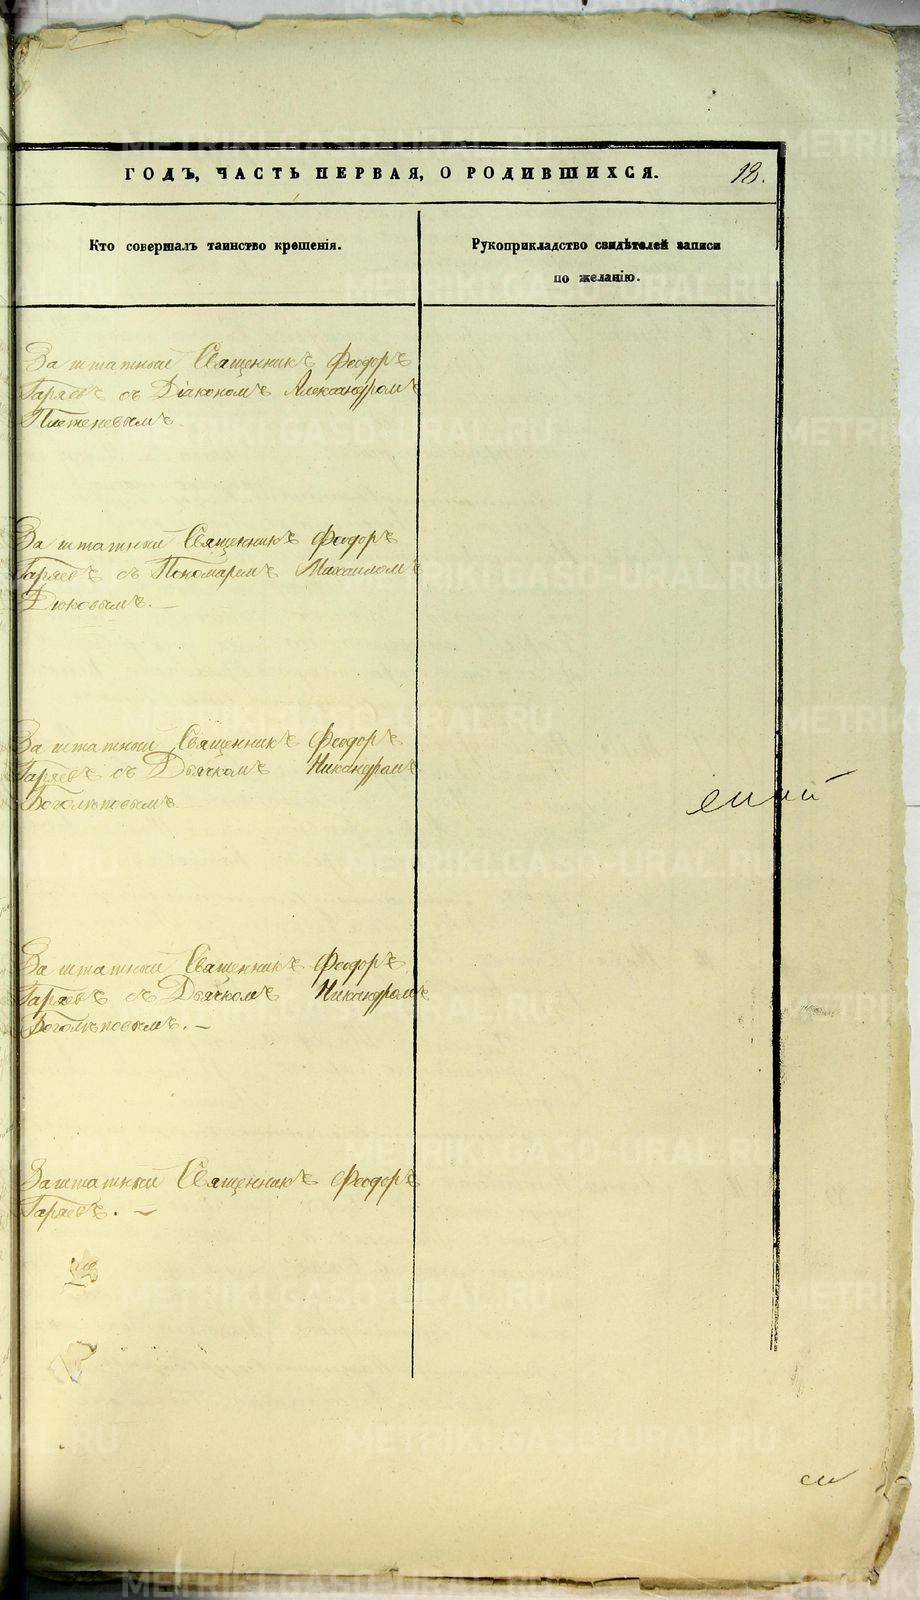 ГОДЪ, ЧАСТЬ ПЕРВАЯ, О РОДИВШИХСЯ. 18.
Кто совершалъ таинство крещенія.
Рукоприкладство свидѣтелей записи
по желанію.
Заштатный Священникъ Феодоръ
Гаряевъ съ Діакономъ Александромъ
Плетеневымъ.
Заштатный Священникъ Феодоръ
Гаряевъ съ Пономаремъ Михаиломъ
Дюковымъ. —
Заштатный Священникъ Феодоръ
Гаряевъ съ Дьячкомъ Никандромъ
Боголѣповымъ.
Заштатный Священникъ Феодоръ
Гаряевъ съ Дьячкомъ Никандромъ
Боголѣповымъ. —
Заштатный Священникъ Феодоръ
Гаряевъ. —
METRIKI.GASO-URAL.RU